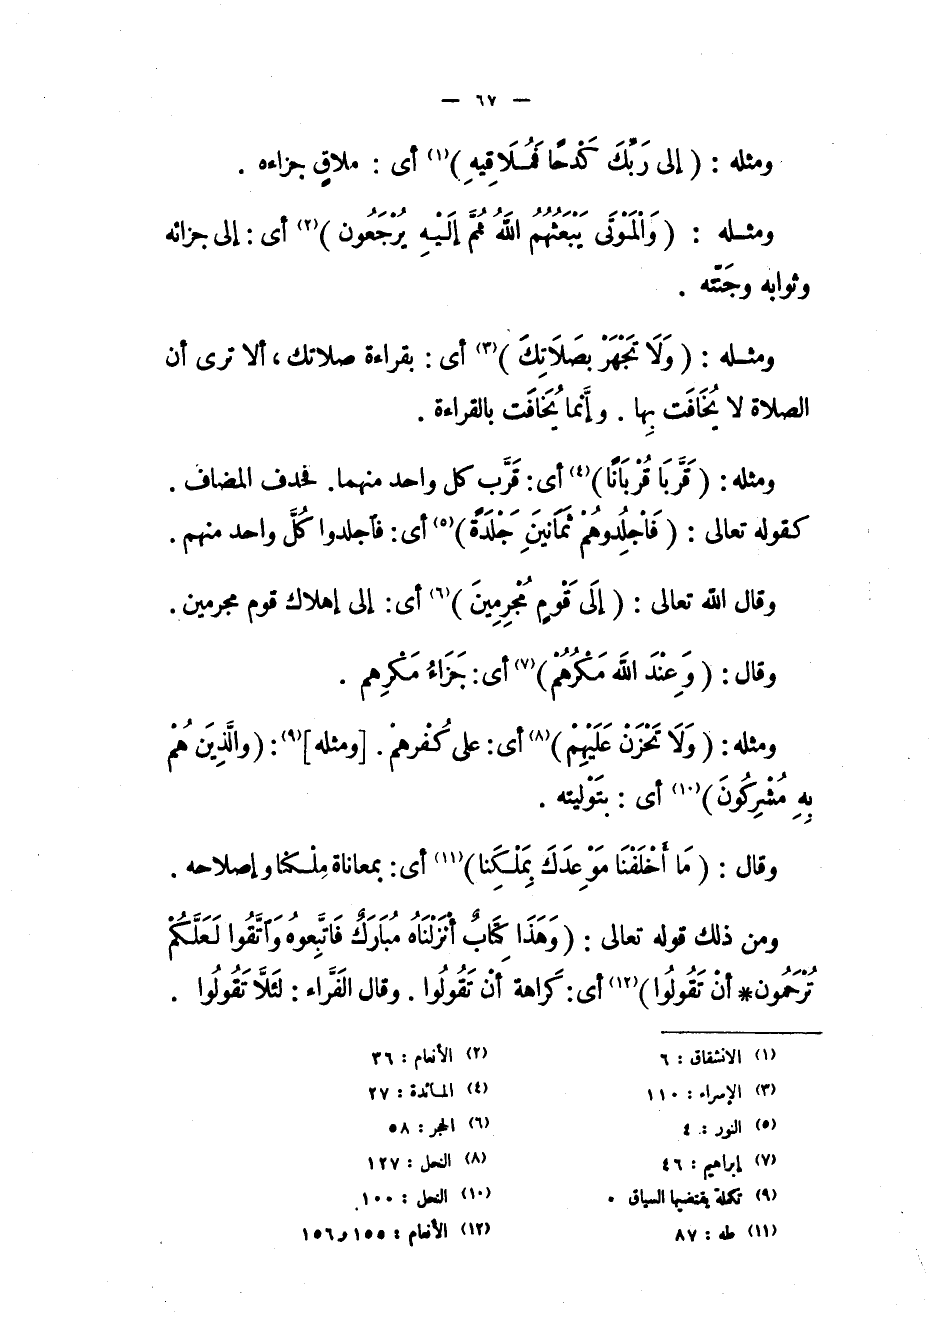 — ٦٧ —
ومثله : ( إلى رَبِّكَ كَدْحًا فَمُـلَاقِيهِ )(١) أى : ملاقٍ جزاءه .
ومثـله : ( وَالْمَوْتَى يَبْعَثُهُمُ اللهُ ثُمَّ إلَيْـهِ يُرْجَعُون )(٢) أى : إلى جزائه
وثوابه وجَنّته .
ومثـله : ( وَلَا تَجْهَرْ بِصَلَاتِكَ )(٣) أى : بقراءة صلاتك ، ألا ترى أن
الصلاة لا يُخَافَت بِها . وإنَّما يُخَافَت بالقراءة .
ومثله : ( قَرَّبَا قُرْبَانًا )(٤) أى : قَرَّب كل واحد منهما. فحدف المضاف .
كـقوله تعالى : ( فَاْجلِدُوهُمْ ثَمَانِينَ جَلْدَةً )(٥) أى : فاجلدوا كُلَّ واحد منهم .
وقال الله تعالى : ( إلَى قَوْمٍ مُجْرِمِينَ )(٦) أى : إلى إهلاك قوم مجرمين .
وقال : ( وَعِنْدَ اللهَ مَكْرُهُمْ )(٧) أى : جَزَاءُ مَكْرِهم .
ومثله : ( وَلَا تَحْزَنْ عَلَيْهِمْ )(٨) أى : على كُـفْرهمْ . [ومثله](٩) : (والَّذِينَ هُمْ
بِهِ مُشْرِكُونَ )(١٠) أى : بتَوْليته .
وقال : ( مَا أَخْلَفْنَا مَوْعِدَكَ بِمَلْـكِنَا )(١١) أى : بمعاناة مِلْـكنا وإصلاحه .
ومن ذلك قوله تعالى : ( وَهَذَا كِتَابٌ أَنْزَلْنَاهُ مُبَارَكٌ فَاتَّبِعوهُ وَاتَّقُوا لَعَلَّكُمْ
تُرْحَمُون* أنْ تَقُولُوا )(١٢) أى : كَرَاهة أنْ تَقُولُوا . وقال الفَرَّاء : لئلَّا تَقُولُوا .
(١) الانشقاق : ٦
(٢) الأنعام : ٣٦
(٣) الإسراء : ١١٠
(٤) المـائدة : ٢٧
(٥) النور : ٤
(٦) الحجر : ٥٨
(٧) إبراهيم : ٤٦
(٨) النحل : ١٢٧
(٩) تكملة يقتضيها السياق .
(١٠) النحل : ١٠٠
(١١) طه : ٨٧
(١٢) الأنعام : ١٥٥ و ١٥٦